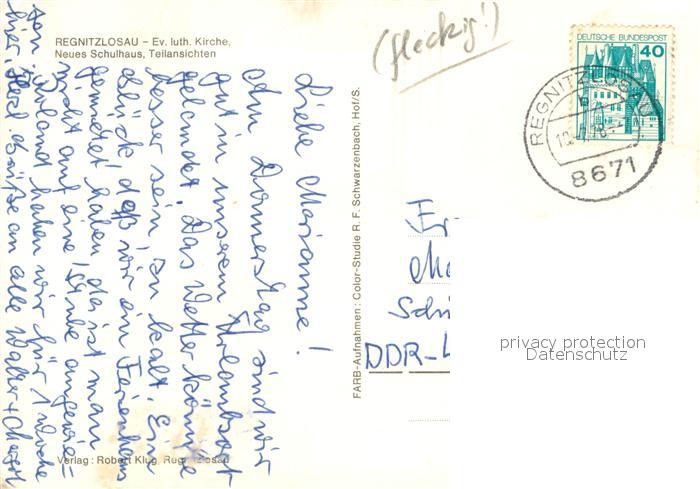 REGNITZLOSAU – Ev. luth. Kirche,
Neues Schulhaus, Teilansichten
(fleckig!)
DEUTSCHE BUNDESPOST
40
REGNITZLOSAU
8671
Liebe Marianne!
Am Donnerstag sind wir
gut in unserem Urlaubsort
gelandet. Das Wetter könnte
besser sein, zu kalt. Ein
Glück daß wir ein Ferienhaus
gemietet haben, da ist man
nicht auf eine Stube angewie=
sen. Roland haben wir für 1 Woche
hier. Herzl. Grüße an alle Walter +
FARB-Aufnahmen: Color-Studie R. F. Schwarzenbach, Hof/S.
Verlag: Robert Klug, Regnitzlosau
DDR-
privacy protection
Datenschutz